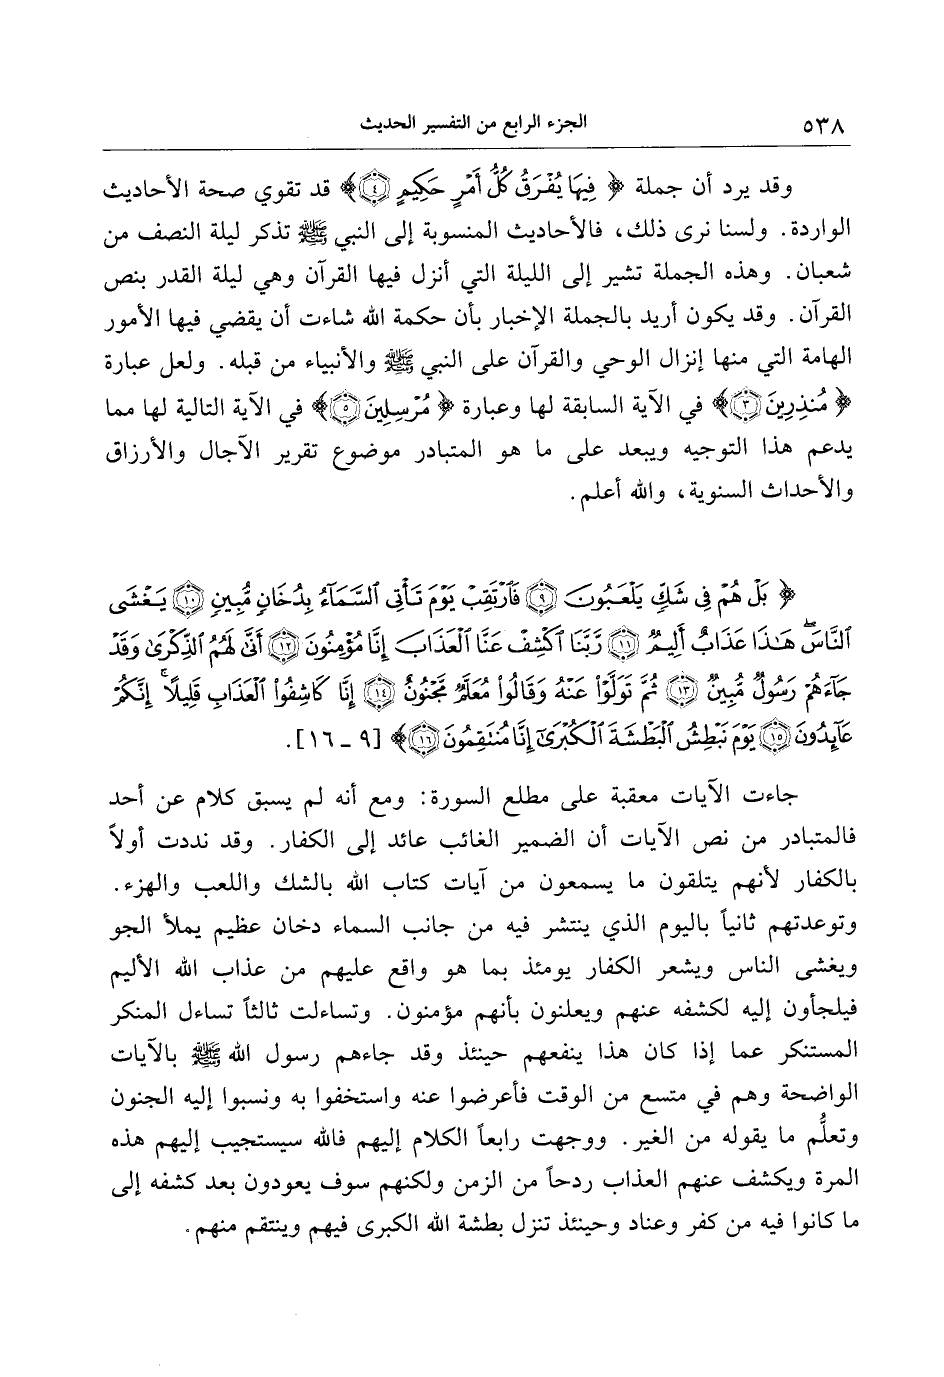 ٥٣٨ الجزء الرابع من التفسير الحديث
وقد يرد أن جملة ﴿ فِيهَا يُفْرَقُ كُلُّ أَمْرٍ حَكِيمٍ (٤) ﴾ قد تقوي صحة الأحاديث
الواردة. ولسنا نرى ذلك، فالأحاديث المنسوبة إلى النبي ﷺ تذكر ليلة النصف من
شعبان. وهذه الجملة تشير إلى الليلة التي أنزل فيها القرآن وهي ليلة القدر بنص
القرآن. وقد يكون أريد بالجملة الإخبار بأن حكمة الله شاءت أن يقضي فيها الأمور
الهامة التي منها إنزال الوحي والقرآن على النبي ﷺ والأنبياء من قبله. ولعل عبارة
﴿ مُنذِرِينَ (٣) ﴾ في الآية السابقة لها وعبارة ﴿ مُرْسِلِينَ (٥) ﴾ في الآية التالية لها مما
يدعم هذا التوجيه ويبعد على ما هو المتبادر موضوع تقرير الآجال والأرزاق
والأحداث السنوية، والله أعلم.
﴿ بَلْ هُمْ فِى شَكٍّ يَلْعَبُونَ (٩) فَٱرْتَقِبْ يَوْمَ تَأْتِى ٱلسَّمَآءُ بِدُخَانٍ مُّبِينٍ (١٠) يَغْشَى
ٱلنَّاسَ ۖ هَـٰذَا عَذَابٌ أَلِيمٌ (١١) رَّبَّنَا ٱكْشِفْ عَنَّا ٱلْعَذَابَ إِنَّا مُؤْمِنُونَ (١٢) أَنَّىٰ لَهُمُ ٱلذِّكْرَىٰ وَقَدْ
جَآءَهُمْ رَسُولٌ مُّبِينٌ (١٣) ثُمَّ تَوَلَّوْا۟ عَنْهُ وَقَالُوا۟ مُعَلَّمٌ مَّجْنُونٌ (١٤) إِنَّا كَاشِفُوا۟ ٱلْعَذَابِ قَلِيلًا ۚ إِنَّكُمْ
عَآئِدُونَ (١٥) يَوْمَ نَبْطِشُ ٱلْبَطْشَةَ ٱلْكُبْرَىٰٓ إِنَّا مُنتَقِمُونَ (١٦) ﴾ [٩ ـ ١٦].
جاءت الآيات معقبة على مطلع السورة: ومع أنه لم يسبق كلام عن أحد
فالمتبادر من نص الآيات أن الضمير الغائب عائد إلى الكفار. وقد نددت أولاً
بالكفار لأنهم يتلقون ما يسمعون من آيات كتاب الله بالشك واللعب والهزء.
وتوعدتهم ثانياً باليوم الذي ينتشر فيه من جانب السماء دخان عظيم يملأ الجو
ويغشى الناس ويشعر الكفار يومئذ بما هو واقع عليهم من عذاب الله الأليم
فيلجأون إليه لكشفه عنهم ويعلنون بأنهم مؤمنون. وتساءلت ثالثاً تساءل المنكر
المستنكر عما إذا كان هذا ينفعهم حينئذ وقد جاءهم رسول الله ﷺ بالآيات
الواضحة وهم في متسع من الوقت فأعرضوا عنه واستخفوا به ونسبوا إليه الجنون
وتعلُّم ما يقوله من الغير. ووجهت رابعاً الكلام إليهم فالله سيستجيب إليهم هذه
المرة ويكشف عنهم العذاب ردحاً من الزمن ولكنهم سوف يعودون بعد كشفه إلى
ما كانوا فيه من كفر وعناد وحينئذ تنزل بطشة الله الكبرى فيهم وينتقم منهم.